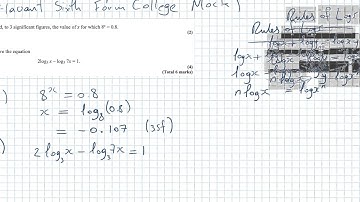 Havant Sixth Form College Mock
d, to 3 significant figures, the value of x for which 8ˣ = 0.8.
(2)
ve the equation
2log₃ x – log₃ 7x = 1.
(4)
(Total 6 marks)
Rules of Log
log x +
log x
n log x = log xⁿ
8ˣ = 0.8
x = log₈(0.8)
= -0.107 (3sf)
2log₃x - log₃7x = 1